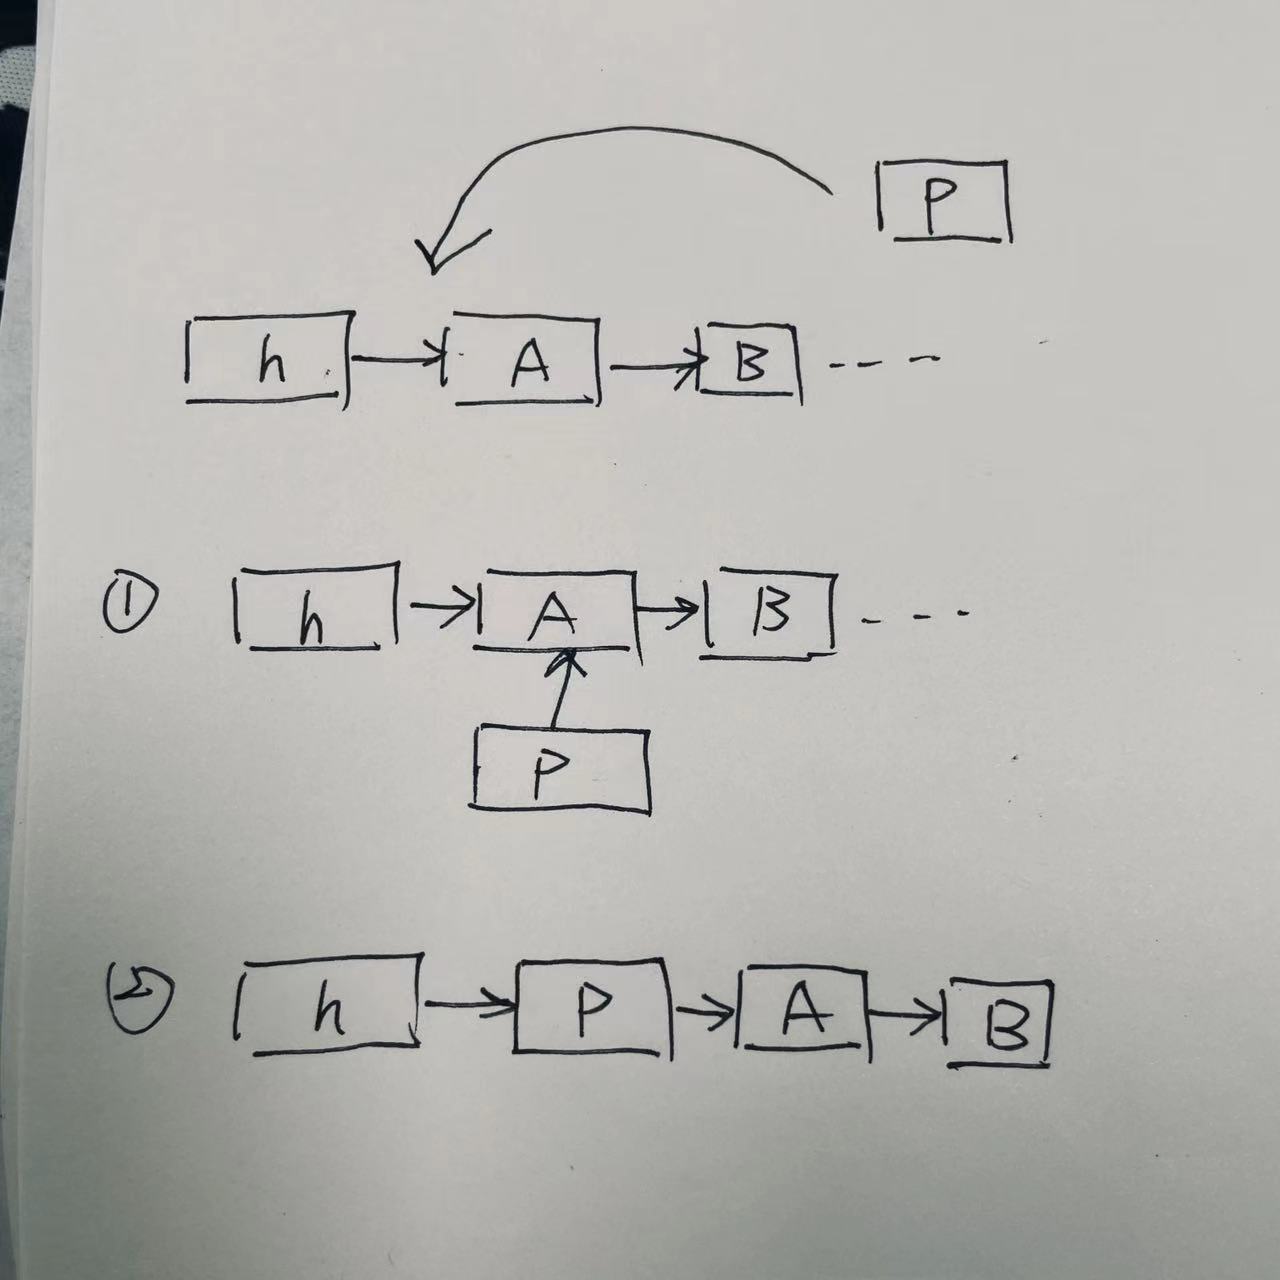 P
h A B
① h A B
P
② h P A B